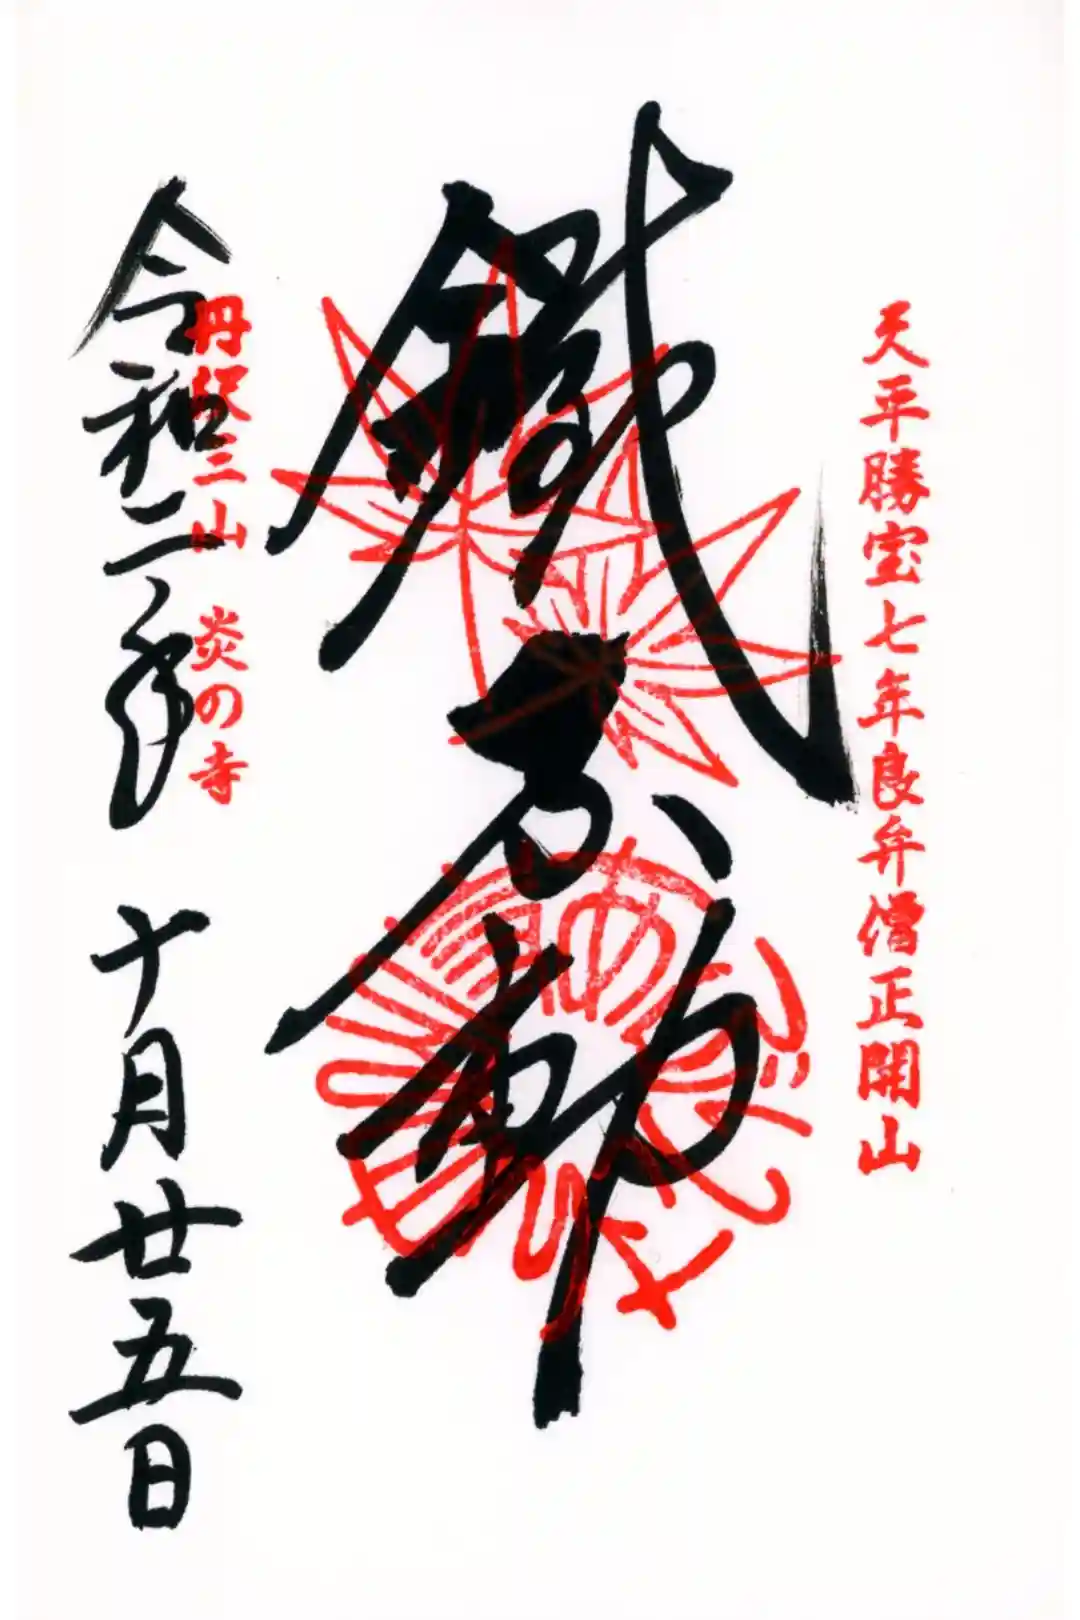 天平勝宝七年良弁僧正開山
鐵不動
丹沢三山　炎の寺
令和二年　十月廿五日